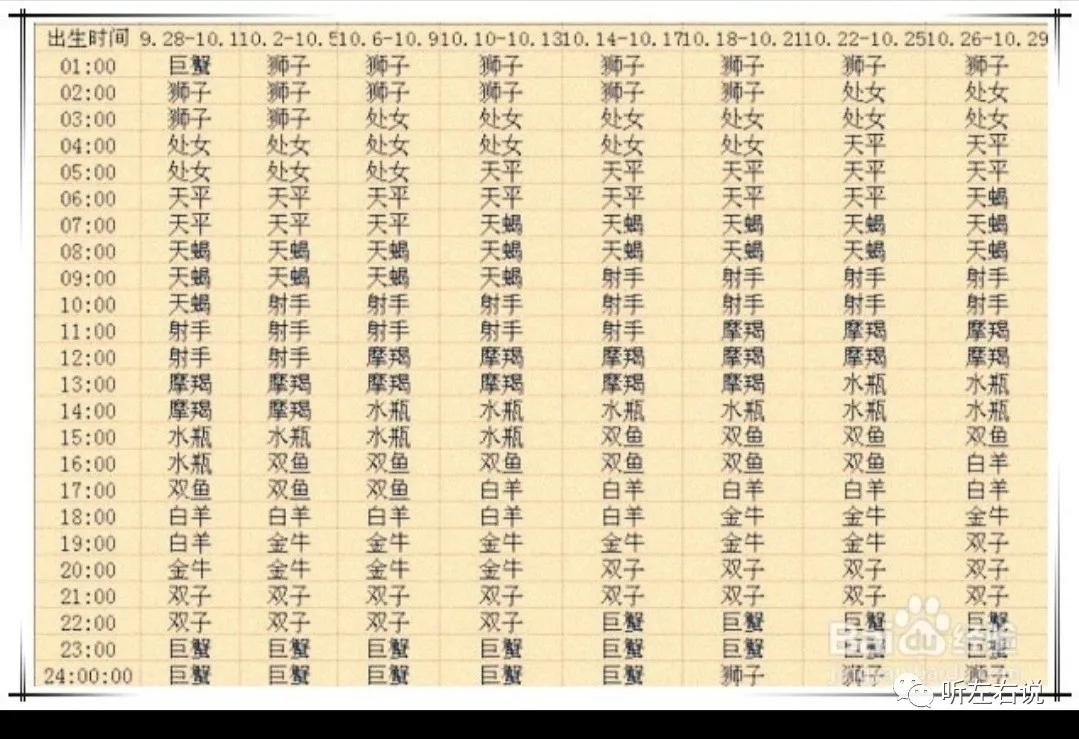 出生时间 9.28-10.1 10.2-10.5 10.6-10.9 10.10-10.13 10.14-10.17 10.18-10.21 10.22-10.25 10.26-10.29
01:00 巨蟹 狮子 狮子 狮子 狮子 狮子 狮子 狮子
02:00 狮子 狮子 狮子 狮子 狮子 狮子 处女 处女
03:00 狮子 狮子 处女 处女 处女 处女 处女 处女
04:00 处女 处女 处女 处女 处女 处女 天平 天平
05:00 处女 处女 处女 天平 天平 天平 天平 天平
06:00 天平 天平 天平 天平 天平 天平 天平 天蝎
07:00 天平 天平 天平 天蝎 天蝎 天蝎 天蝎 天蝎
08:00 天蝎 天蝎 天蝎 天蝎 天蝎 天蝎 天蝎 天蝎
09:00 天蝎 天蝎 天蝎 天蝎 射手 射手 射手 射手
10:00 天蝎 射手 射手 射手 射手 射手 射手 射手
11:00 射手 射手 射手 射手 射手 摩羯 摩羯 摩羯
12:00 射手 射手 摩羯 摩羯 摩羯 摩羯 摩羯 摩羯
13:00 摩羯 摩羯 摩羯 摩羯 摩羯 摩羯 水瓶 水瓶
14:00 摩羯 摩羯 水瓶 水瓶 水瓶 水瓶 水瓶 水瓶
15:00 水瓶 水瓶 水瓶 水瓶 双鱼 双鱼 双鱼 双鱼
16:00 水瓶 双鱼 双鱼 双鱼 双鱼 双鱼 双鱼 白羊
17:00 双鱼 双鱼 双鱼 白羊 白羊 白羊 白羊 白羊
18:00 白羊 白羊 白羊 白羊 白羊 金牛 金牛 金牛
19:00 白羊 金牛 金牛 金牛 金牛 金牛 金牛 双子
20:00 金牛 金牛 金牛 金牛 双子 双子 双子 双子
21:00 双子 双子 双子 双子 双子 双子 双子 双子
22:00 双子 双子 双子 双子 巨蟹 巨蟹 巨蟹 巨蟹
23:00 巨蟹 巨蟹 巨蟹 巨蟹 巨蟹 巨蟹 巨蟹 巨蟹
24:00:00 巨蟹 巨蟹 巨蟹 巨蟹 巨蟹 狮子 狮子 狮子
Baidu 经验
听左右说